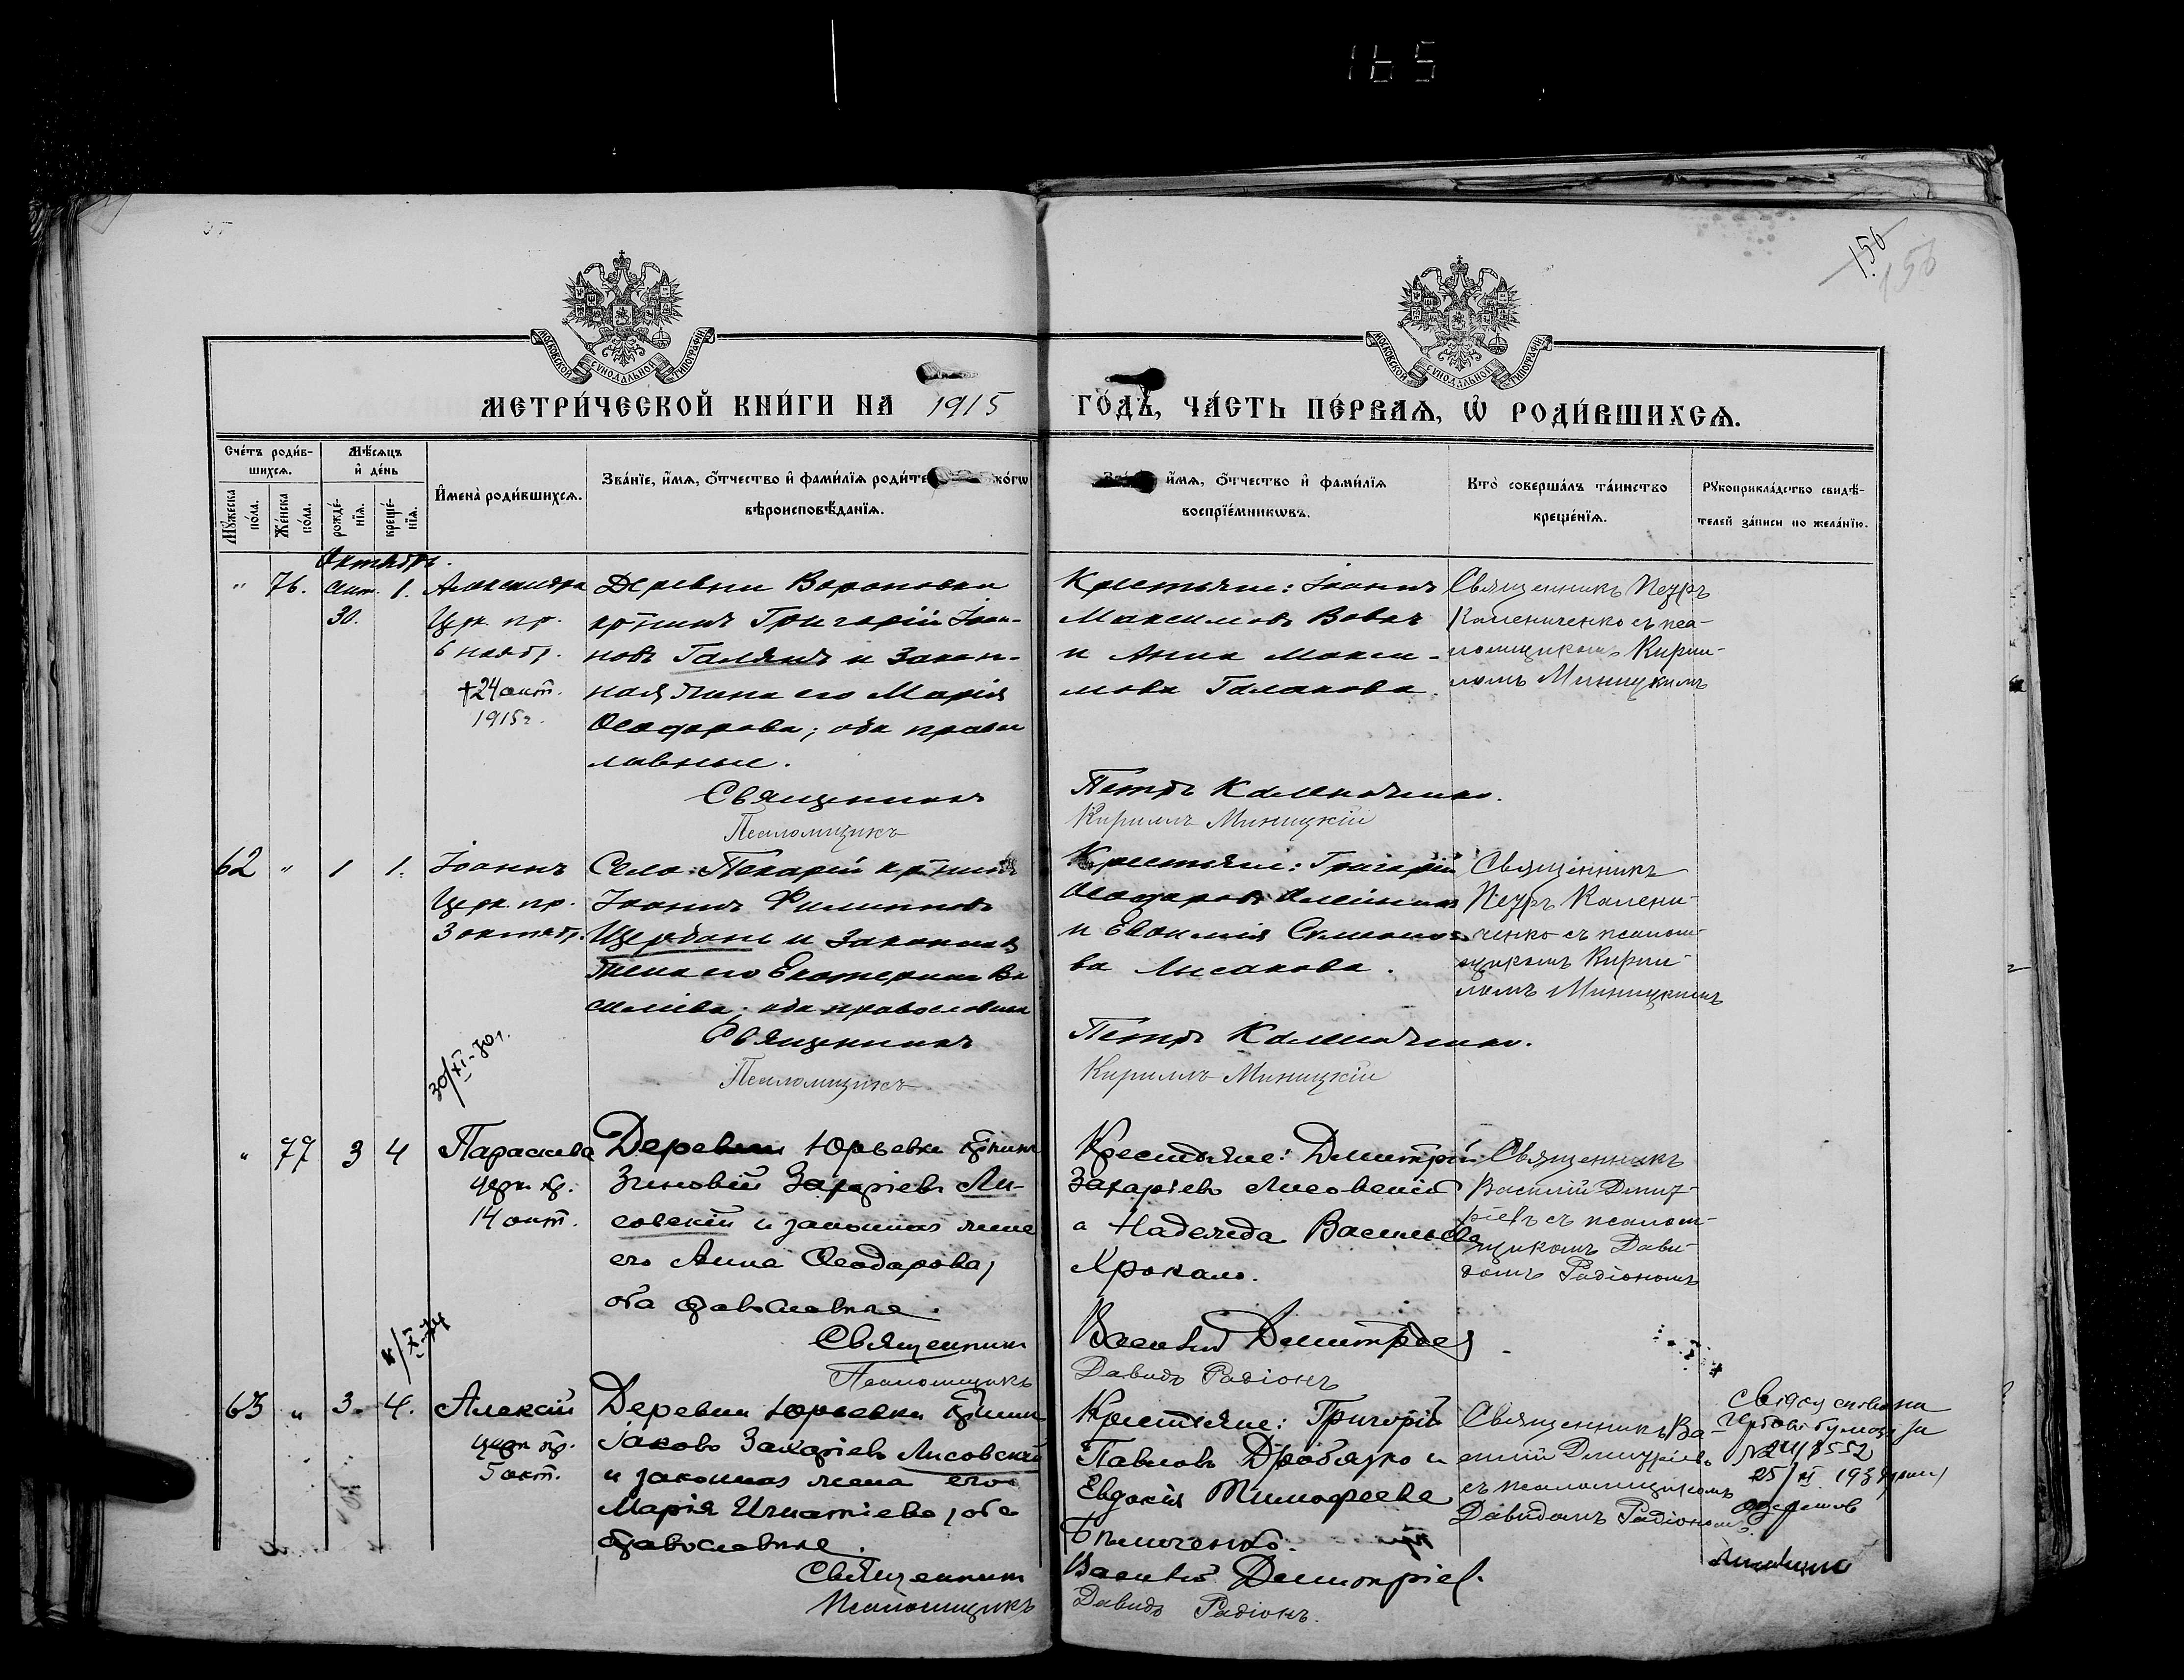 165
156
156
МОСКОВСКОЙ СѴНОДАЛЬНОЙ ТИПОГРАФІИ
МОСКОВСКОЙ СѴНОДАЛЬНОЙ ТИПОГРАФІИ
МЕТРИ́ЧЕСКОЙ КНИ́ГИ НА 1915 ГО́ДЪ, ЧА́СТЬ ПЕ́РВАѦ, Ѡ҆ РОДИ́ВШИХСѦ.
Сче́тъ роди́в-
шихсѧ.
Мꙋ́жеска
по́ла.
Же́нска
по́ла.
Мѣ́сѧцъ
и҆ де́нь
рожде́-
нїѧ.
креще́-
нїѧ.
И҆мена̀ роди́вшихсѧ.
Зва́нїе, и҆́мѧ, ѻ҆́тчество и҆ фами́лїѧ роди́те ко́гѡ
вѣроисповѣ́данїѧ.
и҆́мѧ, ѻ҆́тчество и҆ фами́лїѧ
воспрїе́мникѡвъ.
Кто̀ соверша́лъ та́инство
креще́нїѧ.
Рꙋкоприкла́дство свидѣ́-
телей за́писи по жела́нїю.
Октябрь.
" 76. 30. 1.
Александра
Церк. пр.
6 ноябр.
†24 окт.
1915 г.
Деревни Вороновки
кр̃нинъ Григорій Іоан-
новъ Галякъ и закон-
ная жена его Марія
Ѳеодорова; оба право
лавные.
Священникъ
Псаломщикъ
Крестьяне: Іоаннъ
Максимовъ Вовкъ
и Анна Макси-
мова Галакова.
Петръ Каленченко.
Кириллъ Миницкій
Священникъ Петръ
Калениченко съ пса-
ломщикомъ Кирил-
ломъ Миницкимъ
62 " 1 1.
Іоаннъ
Церк. пр.
3 октябр.
30/XI-70 г.
Село Пекарей кр̃нинъ
Іоаннъ Филиповъ
Щербань и законная
жена его Екатерина Ва
силіева; оба православные
Священникъ
Псаломщикъ
Крестьяне: Григорій
Ѳеодоровъ
и Евѳимія Симоно-
ва Лисакова.
Петръ Каленченко.
Кириллъ Миницкій
Священникъ
Петръ Калени-
ченко съ псалом-
щикомъ Кирил-
ломъ Миницкимъ
" 77 3 4
Параскева
церк. пр.
14 окт.
Деревни Юрьевки кр̃нинъ
Зиновій Захаріевъ Ли-
совскій и законная жена
его Анна Ѳеодорова,
оба православные.
Священникъ
Псаломщикъ
Крестьяне: Димитрій
Захаріевъ Лисовскій
и Надежда Васильева
Крокало.
Василій Димитріев
Давидъ Радіонъ
Священникъ
Василій Димит-
ріевъ съ псалом-
щикомъ Дави-
домъ Радіономъ
63 " 3. 4.
Алексій
церк. пр.
5 окт.
Деревни Юрьевки кр̃нинъ
Іаковъ Захаріевъ Лисовскій
и законная жена его
Марія Игнатіева, оба
православные.
Священникъ
Псаломщикъ
Крестьяне: Григорій
Павловъ Дробязко и
Евдокія Тимофеева
Василій Димитріев.
Давидъ Радіонъ.
Священникъ Ва-
силій Димитріевъ
съ псаломщикомъ
Давидомъ Радіономъ.